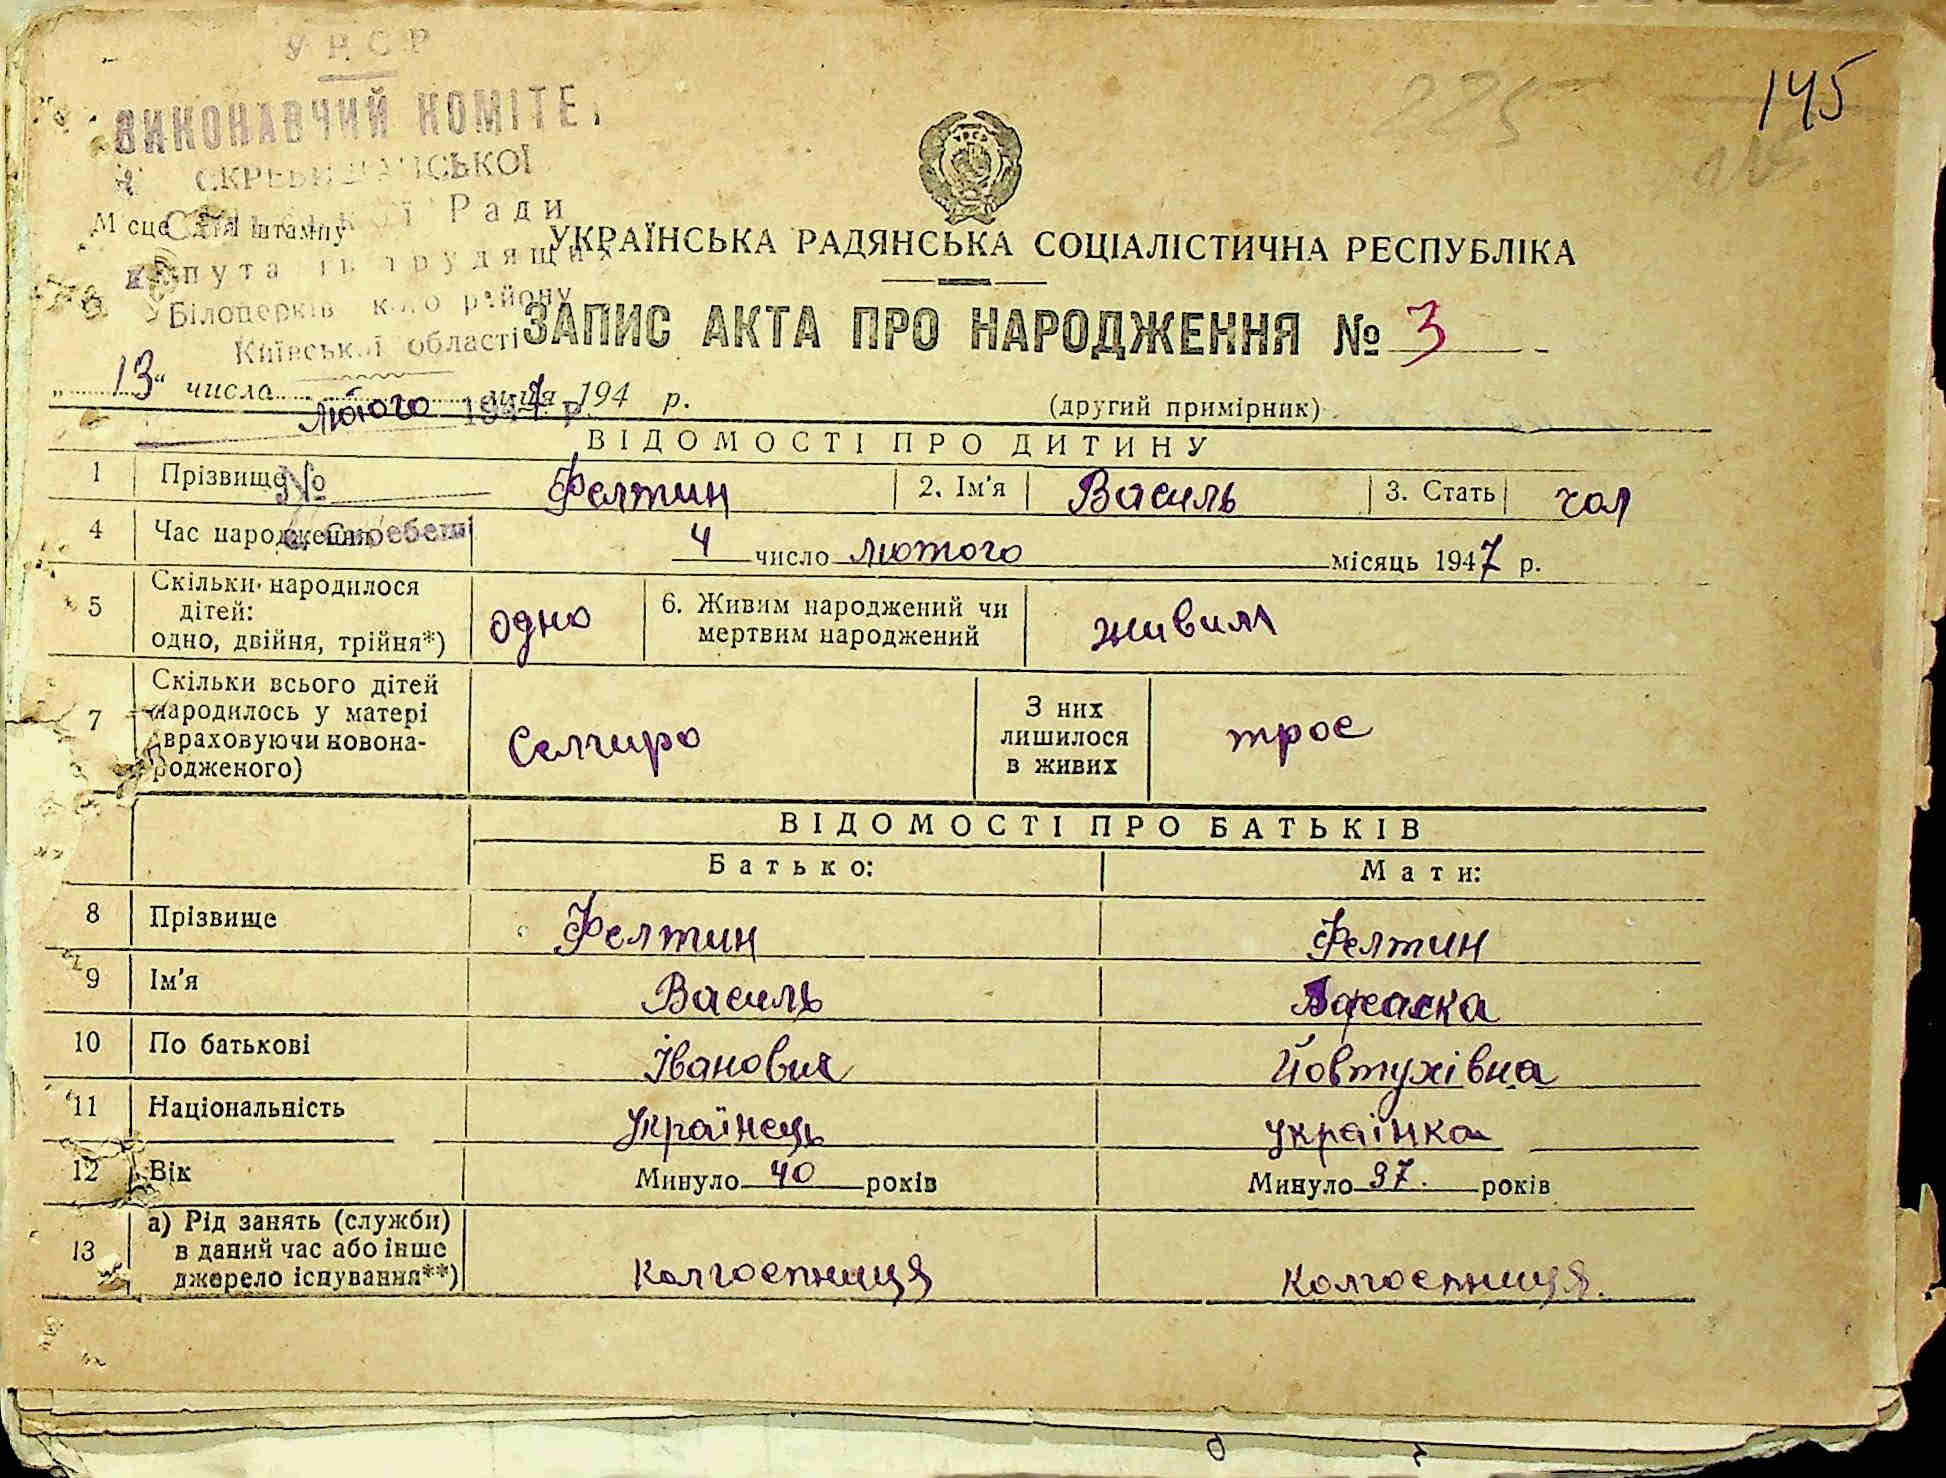 УРСР
ВИКОНАВЧИЙ КОМІТЕТ
СКРЕБИШАНСЬКОЇ
Сільської Ради
депутатів трудящих
Білоцерківського району
Київської області
лютого 1947 р.
№
с. Скребеші
225
145
Місце для штампу
УКРАЇНСЬКА РАДЯНСЬКА СОЦІАЛІСТИЧНА РЕСПУБЛІКА
ЗАПИС АКТА ПРО НАРОДЖЕННЯ № 3
„13“ числа м-ця 194 р.
(другий примірник)
ВІДОМОСТІ ПРО ДИТИНУ
1 Прізвище Фелтин 2. Ім'я Василь 3. Стать чол
4 Час народження 4 число лютого місяць 1947 р.
5 Скільки народилося
дітей:
одно, двійня, трійня*) одно
6. Живим народжений чи
мертвим народжений живим
7 Скільки всього дітей
народилось у матері
(враховуючи новона-
родженого)
З них
лишилося
в живих троє
ВІДОМОСТІ ПРО БАТЬКІВ
Батько: Мати:
8 Прізвище Фелтин Фелтин
9 Ім'я Василь Параска
10 По батькові Іванович Йовтухівна
11 Національність українець українка
12 Вік Минуло 40 років Минуло 37. років
13 а) Рід занять (служби)
в даний час або інше
джерело існування**) колгоспниця колгоспниця.